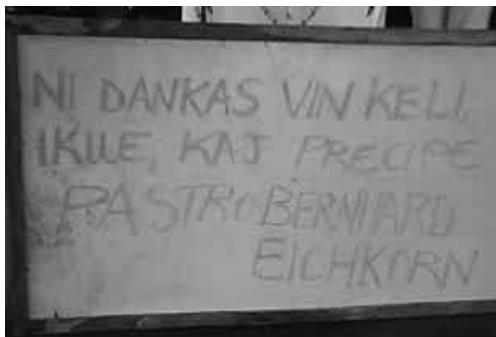 NI DANKAS VIN KELI,
IKUE, KAJ PRECIPE
PASTRO BERNHARD
EICHKORN